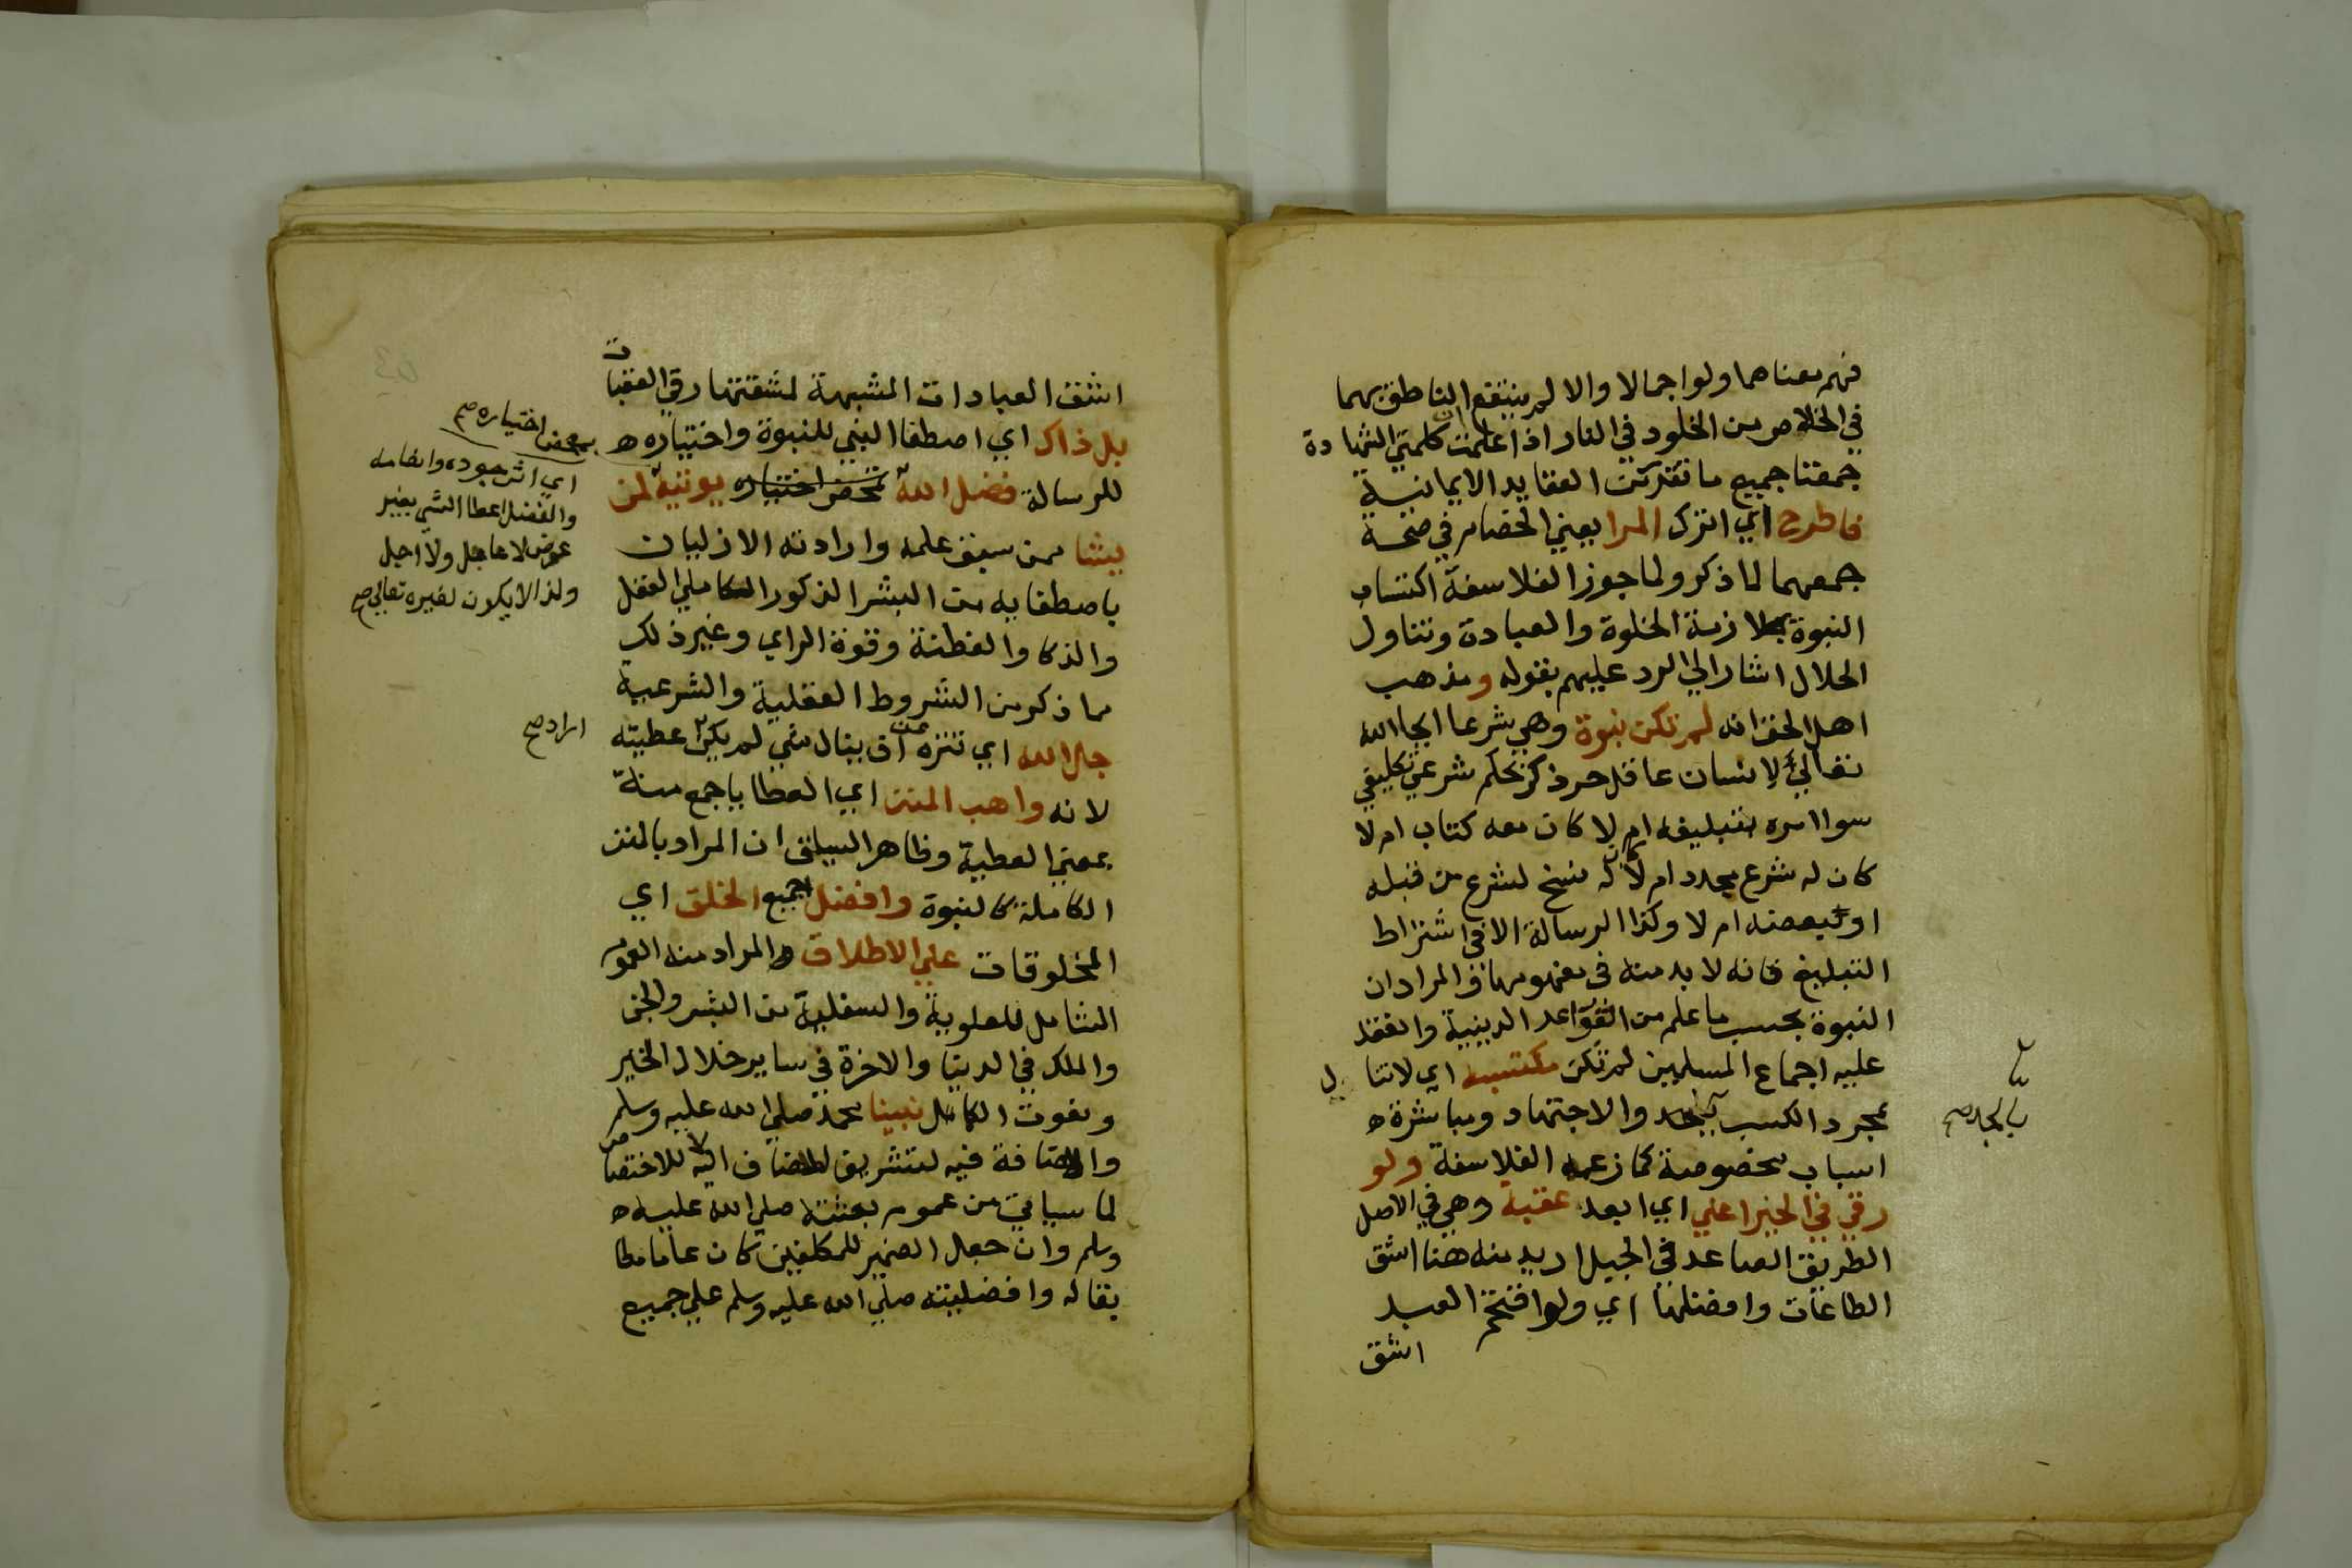 فهم معناهما ولو اجمالا والا لم ينتفع الناطق بهما
في الخلاص من الخلود في النار اذا علمت ان كلمتي الشهادة
جمعتا جميع ما تقرر من العقايد الايمانية
فاطرح اي اترك المرا يعني الخصام في صحة
جمعهما لما ذكر ولما جوز الفلاسفة اكتساب
النبوة بملازمة الخلوة والعبادة وتناول
الحلال اشار الي الرد عليهم بقوله ومذهب
اهل الحق انه لم تكن نبوة وهي شرعا ايحا الله
تعالي لانسان عاقل حر ذكر بحكم شرعي تكليفي
سوا امره بتبليغه ام لا كان معه كتاب ام لا
كان له شرع مجدد ام لا له نسخ لشرع من قبله
او لبعضه ام لا وكذا الرسالة الا في اشتراط
التبليغ فانه لا بد منه في مفهومها فالمراد ان
النبوة بحسب ما علم من القواعد الدينية وانعقد
عليه اجماع المسلمين لم تكن مكتسبة اي لا تنال
بمجرد الكسب بالجد والاجتهاد ومباشرة
اسباب مخصوصة كما زعمه الفلاسفة ولو
رقي في الخير اعلي اي ابعد عقبة وهي في الاصل
الطريق الصاعد في الجبل اريد منه هنا اشق
الطاعات وافضلها اي ولو اقتحم العبد
اشق
بالجد صح
اشق العبادات المشبهة لمشقتها رقي العقبات
بل ذاك اي اصطفا النبي للنبوة واختياره
للرسالة فضل الله بمحض اختياره يوتيه لمن
يشا ممن سبق علمه وارادته الازليان
باصطفايه من البشر الذكور الكاملي العقل
والذكا والفطنة وقوة الراي وغير ذلك
مما ذكر من الشروط العقلية والشرعية
جل الله اي تنزه عن ان ينال شي لم يكن عطيته
لانه واهب المنن اي العطايا جمع منة
بمعني العطية وظاهر السياق ان المراد بالمنن
الكاملة كالنبوة وافضل جميع الخلق اي
المخلوقات علي الاطلاق والمراد منه العموم
الشامل للعلوية والسفلية من البشر والجن
والملك في الدنيا والاخرة في ساير خلال الخير
ونعوت الكمال نبينا محمد صلي الله عليه وسلم
والاضافة فيه لتشريف المضاف اليه لا للاختصاص
لما سياتي من عموم بعثته صلي الله عليه
وسلم وان جعل الضمير للمكلفين كان عاما مطا
بقا له وافضليته صلي الله عليه وسلم علي جميع
بمحض اختياره صح
اي اثر جوده وانعامه
والفضل اعطا الشي بغير
عوض لا عاجل ولا اجل
ولذا لا يكون لغيره تعالي صح
اراد صح